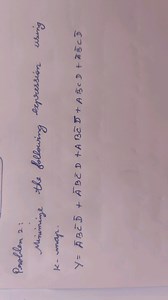 Problem 2:
Minimize the following expression using
K-map.
Y = A̅B̅C̅D̅ + A̅BC̅D + ABC̅D̅ + ABCD + A̅B̅CD̅